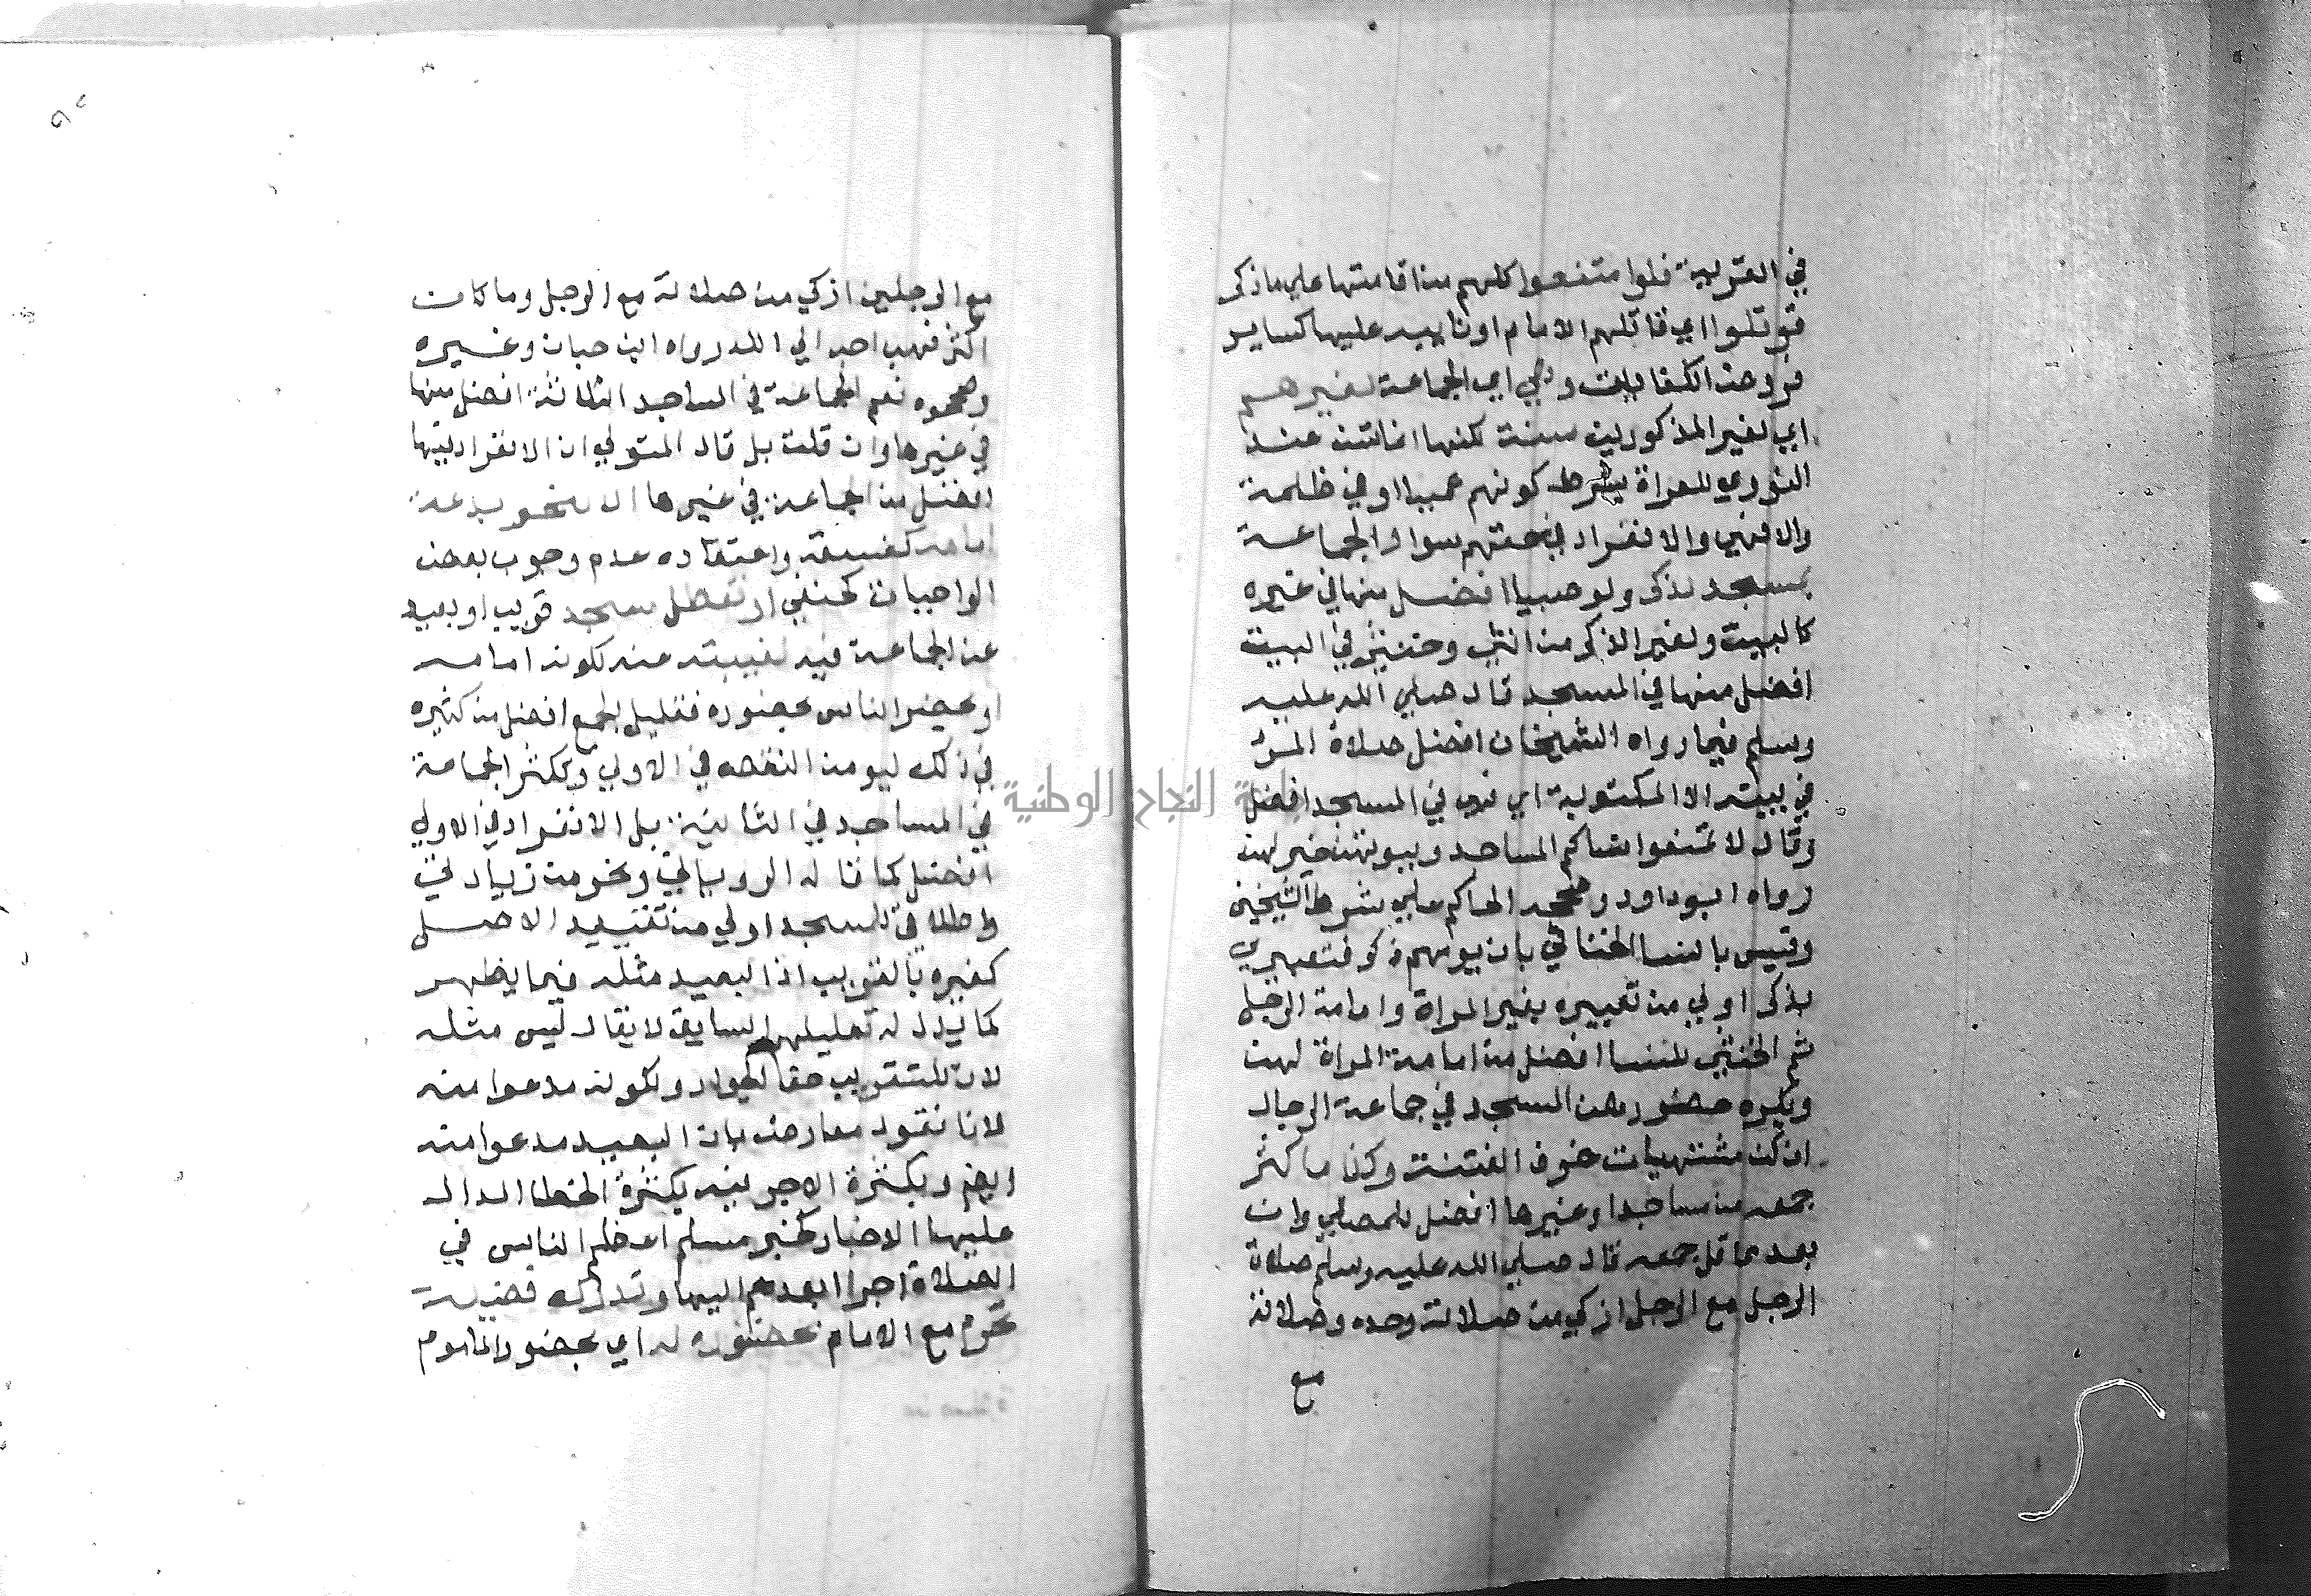 في القرية فلو امتنعوا كلهم من اقامتها علي ما ذكر
قوتلوا اي قاتلهم الامام او نايبه عليها كساير
فروض الكفايات وهي اي الجماعة لغيرهم
اي لغير المذكورين سنة لكنها انما تسن عند
النووي للعراة بشرط كونهم عميا او في ظلمة
والا فهي والانفراد في حقهم سواء والجماعة
بمسجد لذكر ولو صبيا افضل منها في غيره
كالبيت ولغير الذكر من انثي وخنثي في البيت
افضل منها في المسجد قال صلي الله عليه
وسلم فيما رواه الشيخان افضل صلاة المرء
في بيته الا المكتوبة اي فهي في المسجد افضل
وقال لا تمنعوا نساكم المساجد وبيوتهن خير لهن
رواه ابو داود وصححه الحاكم علي شرط الشيخين
وقيس بالنسا الخناثي بان يومهم ذكر فتعبيري
بذكر اولي من تعبيره بغير المراة وامامة الرجل
ثم الخنثي للنسا افضل من امامة المراة لهن
ويكره حضورهن المسجد في جماعة الرجال
ان كن مشتهيات خوف الفتنة وكذا ما كثر
جمعه من مساجد او غيرها افضل للمصلي وان
بعد مما قل جمعه قال صلي الله عليه وسلم صلاة
الرجل مع الرجل ازكي من صلاته وحده وصلاته
مع
مع الرجلين ازكي من صلاته مع الرجل وما كان
اكثر فهو احب الي الله رواه ابن حبان وغيره
وصححوه نعم الجماعة في المساجد الثلاثة افضل منها
في غيرها وان قلت بل قال المتولي ان الانفراد فيها
افضل من الجماعة في غيرها الا لنحو بدعة
امامه كفسقه واعتقاده عدم وجوب بعض
الواجبات كحنفي او تعطل مسجد قريب او بعيد
عن الجماعة فيه لغيبته عنه لكونه امامه
او يحضر الناس بحضوره فقليل الجمع افضل من كثيره
في ذلك ليومن النقص في الاولي وتكثر الجماعة
في المساجد في الثانية بل الانفراد في الاولي
افضل كما قاله الروياني ونحو من زيادتي
واطلاقي المسجد اولي من تقييد الاصل
كغيره بالقريب اذ البعيد مثله فيما يظهر
كما يدل له تعليلهم السابق لا يقال ليس مثله
لان للقريب حق الجوار ولكونه مدعوا منه
لانا نقول معارض بان البعيد مدعوا منه
ايضا وبكثرة الاجر فيه بكثرة الخطا الدال
عليها الاخبار كخبر مسلم اعظم الناس في
الصلاة اجرا ابعدهم اليها وتدرك فضيلة
تحرم مع الامام بحضوره له اي بحضور الماموم
جامعة النجاح الوطنية